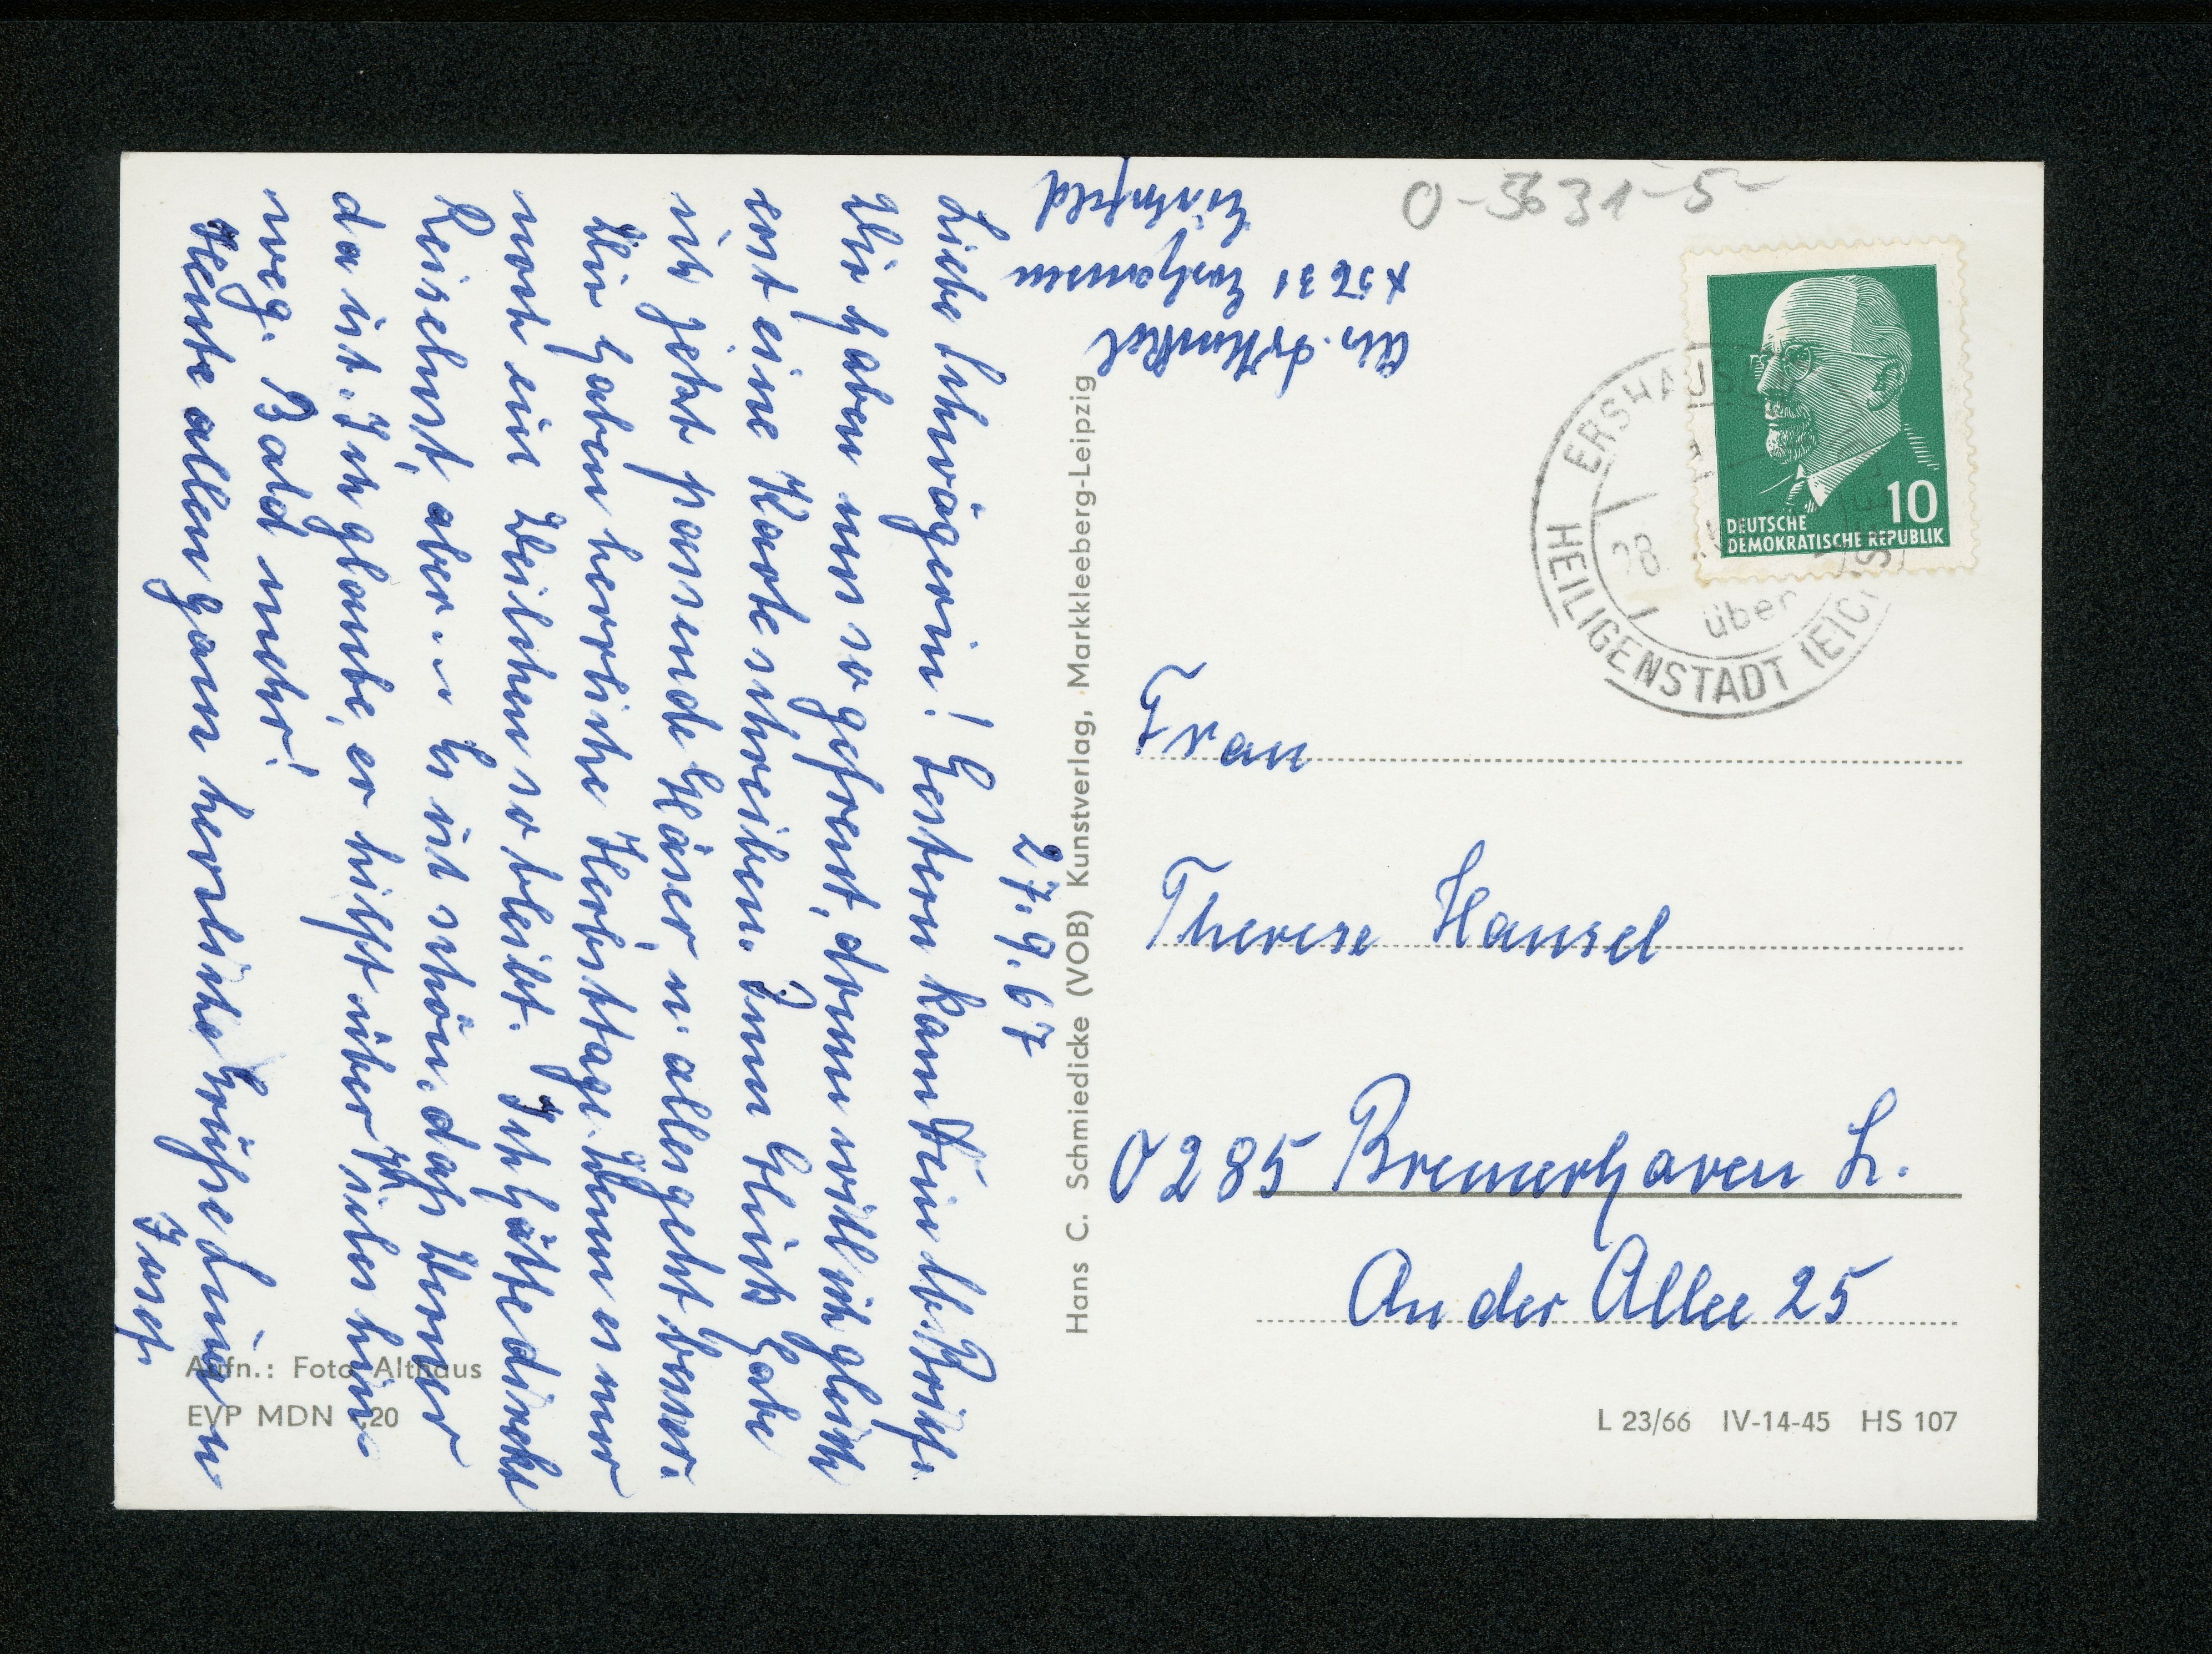 27.9.67
Liebe Schwägerin! Gestern kam Dein lb. Brief.
Wir haben uns so gefreut, drum will ich gleich
erst eine Karte schreiben. Zum Glück habe
ich jetzt passende Gläser u. alles geht besser.
Wir haben herrliche Herbsttage. Wenn es nur
noch ein Weilchen so bleibt. Ich hätte direkt
Reiselust, aber.. Es ist schön, daß Werner
da ist. Ich glaube, er hilft über vieles hin-
weg. Bald mehr!
Heute allen ganz herzliche Grüße Deinen
Josef.
Aufn.: Foto Althaus
EVP MDN ,20
Hans C. Schmiedicke (VOB) Kunstverlag, Markkleeberg-Leipzig
Abs.
x 5631 Ershausen
Eichsfeld
0-5631-5-
10
DEUTSCHE
DEMOKRATISCHE REPUBLIK
ERSHAUSEN
28.
über
HEILIGENSTADT (EICHSF
Frau
Therese Hansel
0285 Bremerhaven L.
An der Allee 25
L 23/66 IV-14-45 HS 107